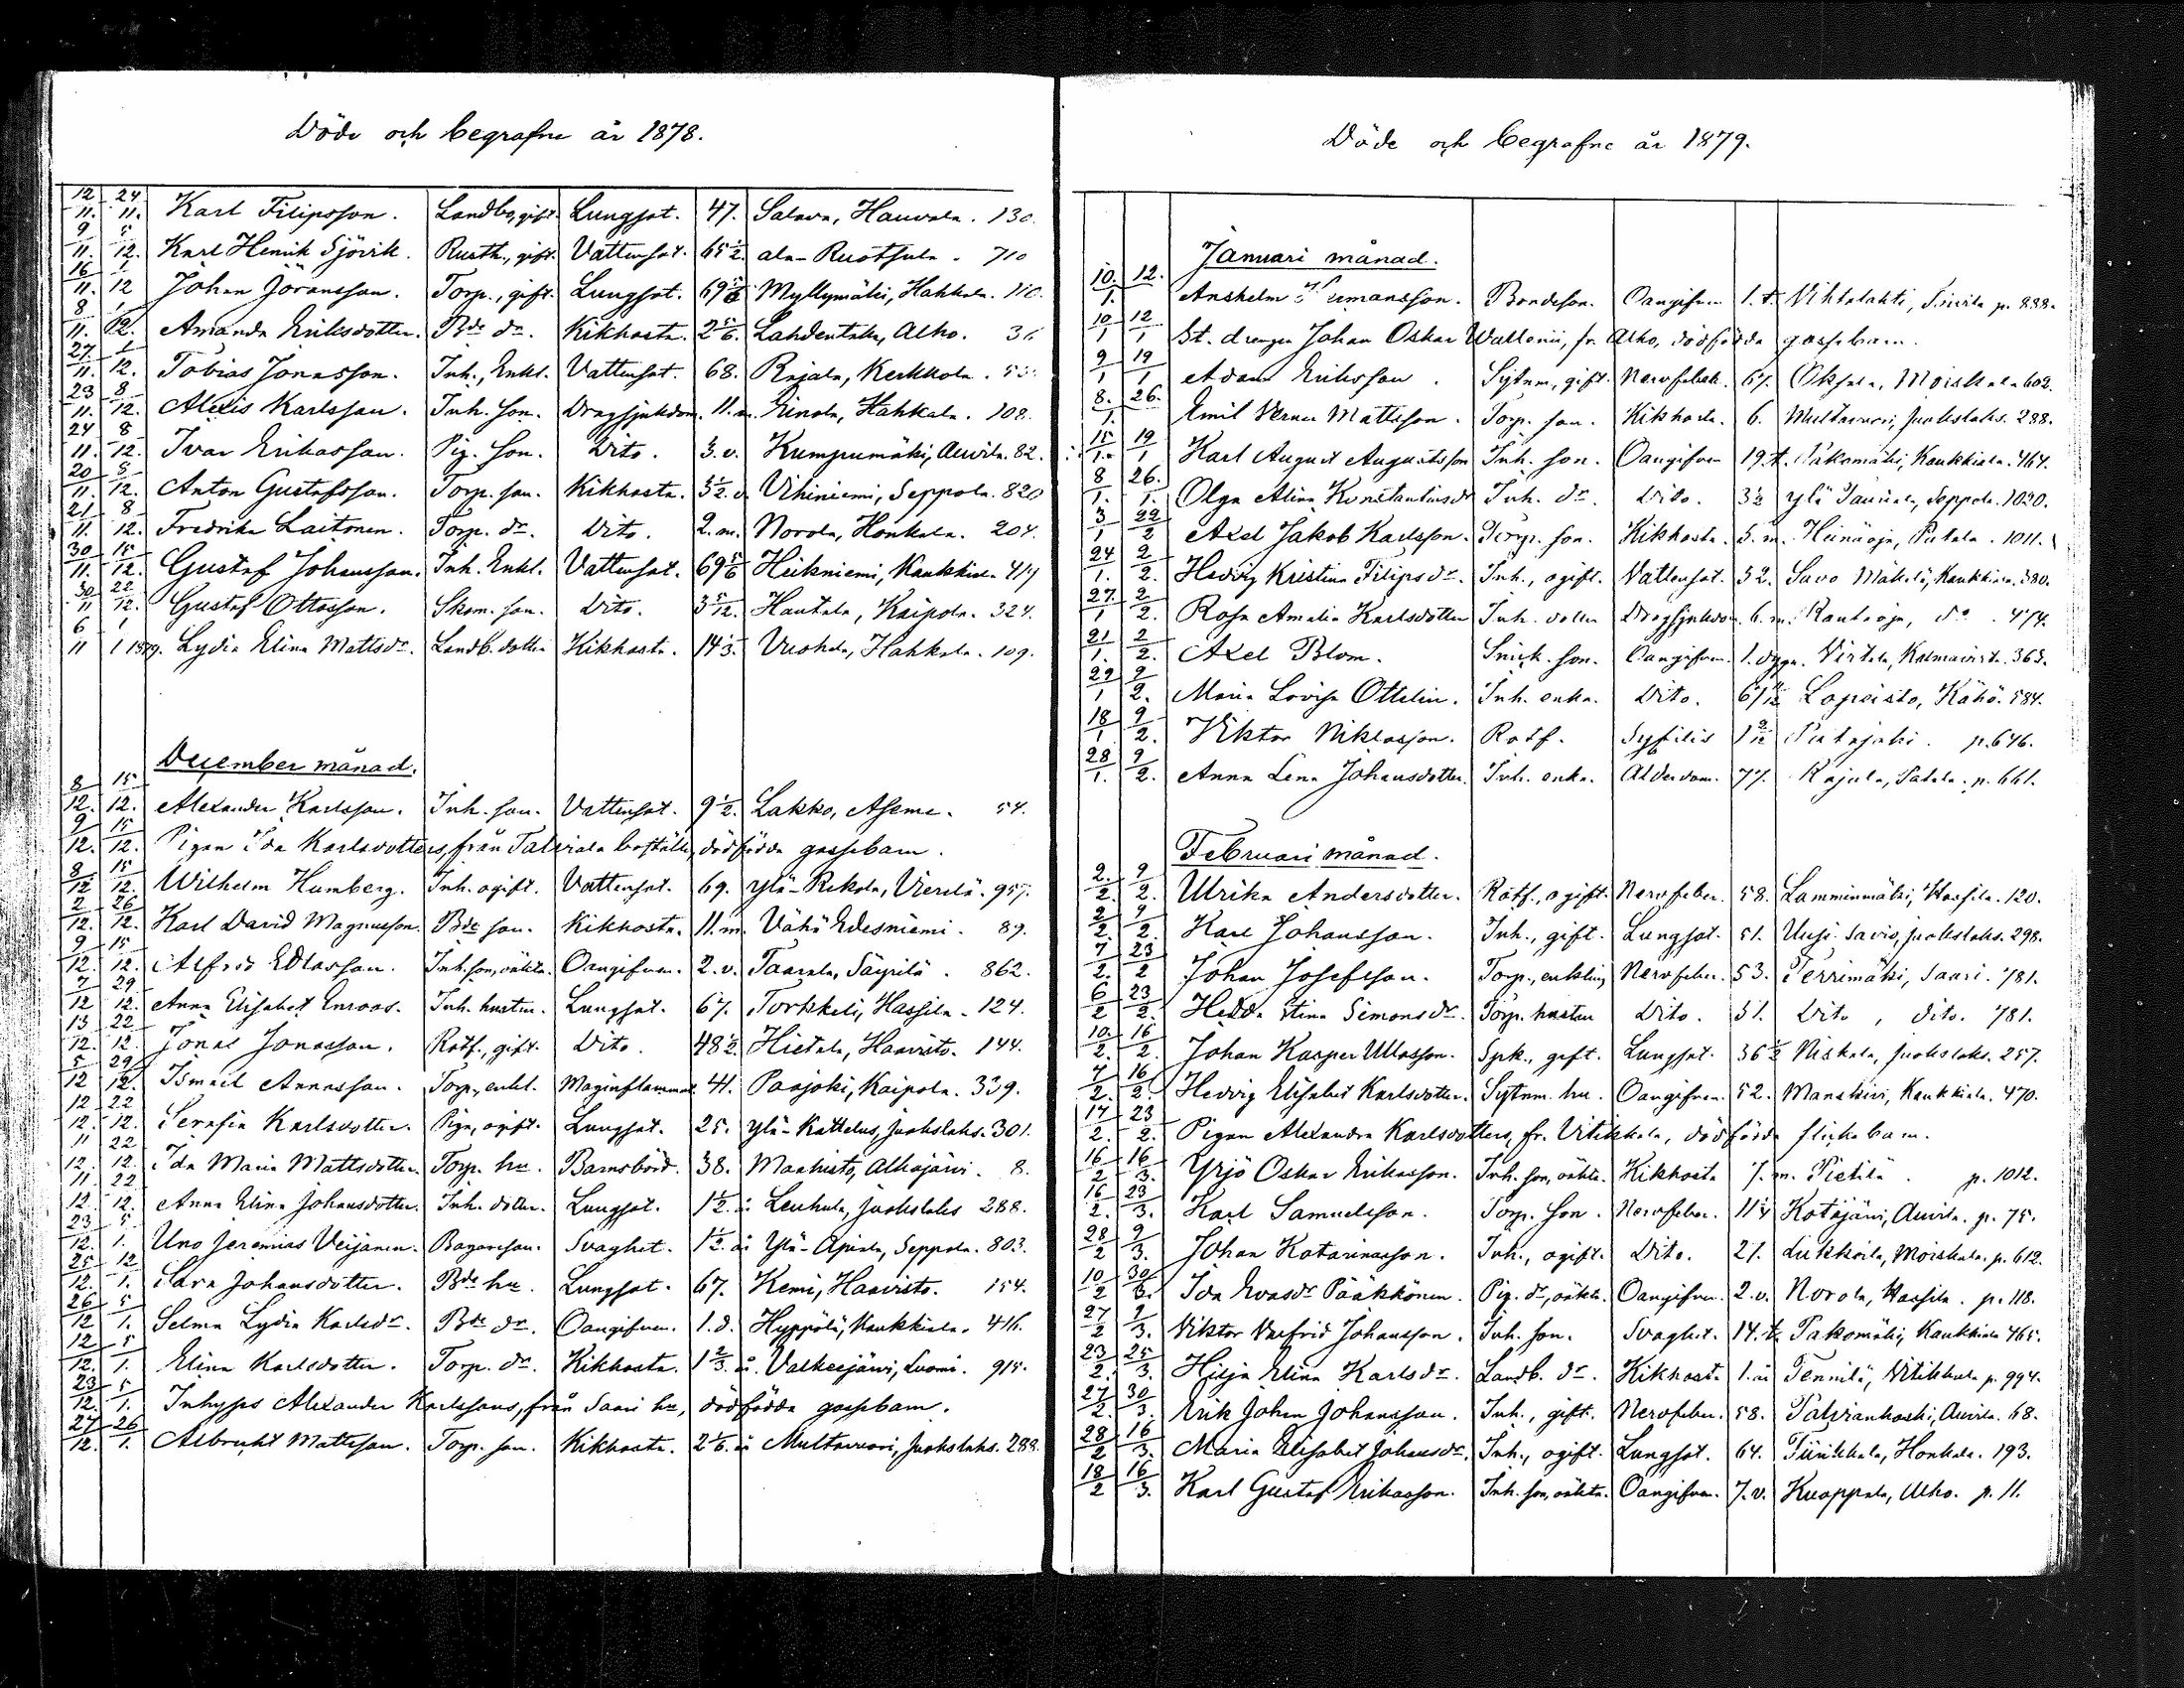 Döde och begrafne år 1878.
12/11. 24/11. Karl Filipsson. Landbo, gift. Lungsot. 47. Salava, Hauvala. 130.
9/11. 5/12. Karl Henrik Sjövik. Rusth., gift. Vattensot. 65 1/2. ala-Ruotsula. 710
16/11. 1/12 Johan Jöransson. Torp., gift. Lungsot. 69 Myllymäki, Hahkala. 110.
8/11. 1/12. Amanda Eriksdotter. Bde dr. Kikhosta. 2 5/6. Lahdentaka, Alho. 36
27/11. 1/12. Tobias Jonasson. Inh., Enkl. Vattensot. 68. Rajala, Kerkkola.
23/11. 8/12. Alexis Karlsson. Inh. son. Dragsjukdom. 11. m. Einola, Hahkala. 108.
24/11. 8/12. Ivar Erikasson. Pig. son. Dito. 3. v. Kumpumäki, Auvila. 82.
20/11. 8/12. Anton Gustafsson. Torp. son. Kikhosta. 3 1/2. Vihiniemi, Seppola. 820
21/11. 8/12. Fredrika Laitonen. Torp. dr. Dito. 2. m. Norola, Honkala. 204.
30/11. 15/12. Gustaf Johansson. Inh. Enkl. Vattensot. 69 5/6 Heikniemi, Kaukkiala 414
30/11 22/12. Gustaf Ottosson. Skom. son. Dito. 3 5/12. Hautala, Kaipola. 324.
6/11 1/1 1879. Lydia Elina Mattsdr. Landb. dotter Kikhosta. 14 1/3. Vuohela, Hahkala. 109.
December månad.
8/12. 15/12. Alexander Karlsson. Inh. son. Vattensot. 9 1/2. Lakko, Aseme. 54.
9/12. 15/12. Pigan Ida Karlsdotters, från Talviala boställe, dödfödda gossebarn.
8/12 15/12. Wilhelm Humberg. Inh. ogift. Vattensot. 69. Ylä-Rekola, Vierilä. 957.
2/12. 26/12. Karl David Magnusson. Bde son. Kikhosta. 11. m. Vähä Edesniemi. 89.
9/12. 15/12. Alfrid Edlasson. Inh. son, oäkta. Oangifven. 2. v. Taarala, Säyrilä. 862.
7/12 29/12. Anna Elisabet Enroos. Inh. hustru. Lungsot. 67. Torkkeli, Hassila. 124.
13/12. 22/12. Jonas Jonasson. Rotf., gift. Dito. 48 1/2. Hietala, Haavisto. 144.
5/12 29/12. Ismael Annasson. Torp., enkl. Maginflammat. 41. Paajoki, Kaipola. 339.
12/12. 22/12. Serafia Karlsdotter. Piga, ogift. Lungsot. 25. Ylä-Kattelus, Juokslaks. 301.
11/12. 22/12. Ida Maria Mattsdotter. Torp. hu. Barnsbörd. 38. Manhisto, Alhojärvi. 8.
11/12. 22/12. Anna Elina Johansdotter. Inh. dotter. Lungsot. 1 1/2. å. Leuhula, Juokslaks 288.
23/12. 5/1. Uno Jeremias Veijanen. Bagareson. Svaghet. 1 1/2. å Ylä-Apiala, Seppola. 803.
25/12. 12/1. Sara Johansdotter. Bde hu. Lungsot. 67. Kemi, Haavisto. 154.
26/12 5/1. Selma Lydia Karlsdr. Bde dr. Oangifven. 1. d. Hyppölä, Kaukkiala. 416.
12/12. 5/1. Elina Karlsdotter. Torp. dr. Kikhosta. 1 2/3. å. Valkeejärvi, Luomi. 915.
23/12. 5/1. Inhyses Alexander Karlssons, från Saari hu, dödfödda gossebarn.
27/12. 26/1. Albrecht Mattsson. Torp. son. Kikhosta. 2 1/6. å Multavuori, Juokslaks. 288.
Döde och begrafne år 1879.
Januari månad.
10./1. 12. Anshelm Bondeson. Oangifven 1. t. Vihtalahti, p. 838.
10/1 12/1 St. drengen Johan Oskar Wallenii, fr. Alho, dödfödda gossebarn.
9/1 19/1 Adam Eriksson. Sytnm., gift. Nervfeber. 67. Oksala, Moiskala 602.
8./1. 26. Emil Verner Mattsson. Torp. son. Kikhosta. 6. Multavuori, Juokslaks. 288.
15/1. 19/1 Karl August Augustsson Inh. son. Oangifven 19. t. Pakomäki, Kaukkiala. 464.
8/1. 26./1. Olga Alina Konstantinsdr Inh. dr. Dito. 3 1/2 Ylä Seppola. 1020.
3/1 22/2 Axel Jakob Karlsson. Torp. son. Kikhosta. 5. m. Heinäoja, 1011.
24/1. 2/2. Hedvig Kristina Filipsdr. Inh., ogift. Vattensot. 32. Savo Mäkelä, Kaukkiala. 380.
27/1 2/2. Rosa Amalia Karlsdotter Inh. dotter Dragsjukdom. 6. m. Rautaoja, do. 474.
21/1. 2/2. Axel Blom. Snick. son. Oangifven. 1. dygn. Virtala, Kalmavirta. 363.
22/1 2/2. Maria Lovisa Ottelin. Inh. enka. Dito. 67 Lopeisto, Kähö. 584.
18/1 9/2. Viktor Niklasson. Rotf. Syfilis 1 9/12 Patajoki. p. 646.
28/1. 9/2. Anna Lena Johansdotter. Inh. enka. Ålderdom. 77. Rajala, Patala. p. 661.
Februari månad.
2./2. 9/2. Ulrika Andersdotter. Rotf., ogift. Nervfeber. 58. Lamminmäki, Hassila. 120.
2/2. 9/2. Karl Johansson. Inh., gift. Lungsot. 51. Uusi-Savio, Juokslaks. 298.
7/2. 23/2 Johan Josefsson. Torp., enkling Nervfeber. 53. Perrimäki, Saari. 781.
6/2 23/2. Hedda Stina Simonsdr. Torp. hustru Dito. 51. Dito, dito. 781.
10./2. 16/2. Johan Kasper Ullasson. Spk., gift. Lungsot. 36 1/2 Niskala, Juokslaks. 257.
7/2. 16/2. Hedvig Elisabet Karlsdotter. Sytnm. hu. Oangifven. 52. Manakivi, Kaukkiala. 470.
17/2. 23/2. Pigan Alexandra Karlsdotters, fr. Vitikkala, dödfödda flickebarn.
16/2 16/3. Yrjö Oskar Erikasson. Inh. son, oäkta. Kikhosta 7. m. Pietilä. p. 1012.
16/2. 23/3. Karl Samuelsson. Torp. son. Nervfeber. 11 1/4 Kotajärvi, Auvila. p. 75.
28/2 9/3. Johan Katarinasson. Inh., ogift. Dito. 21. Lukkoila, Moiskala. p. 612.
10/2 30/3. Ida Evasdr Pääkkönen. Pig. dr, oäkta. Oangifven. 2. v. Norola, Hassila. p. 118.
27/2 9/3. Viktor Varfrid Johansson. Inh. son. Svaghet. 14. t. Pakomäki, Kaukkiala 465.
23/2. 25/3. Hilja Elina Karlsdr. Landb. dr. Kikhosta 1. å Tennilä, Vitikkala p. 994.
27/2. 30/3. Erik Johan Johansson. Inh., gift. Nervfeber. 58. Patviankoski, Auvila. 68.
28/2 16/3. Maria Elisabet Johansdr. Inh., ogift. Lungsot. 64. Tiirikkala, Honkala. 193.
18/2 16/3. Karl Gustaf Erikasson. Inh. son, oäkta. Oangifven. 7. v. Kuoppala, Alho. p. 11.